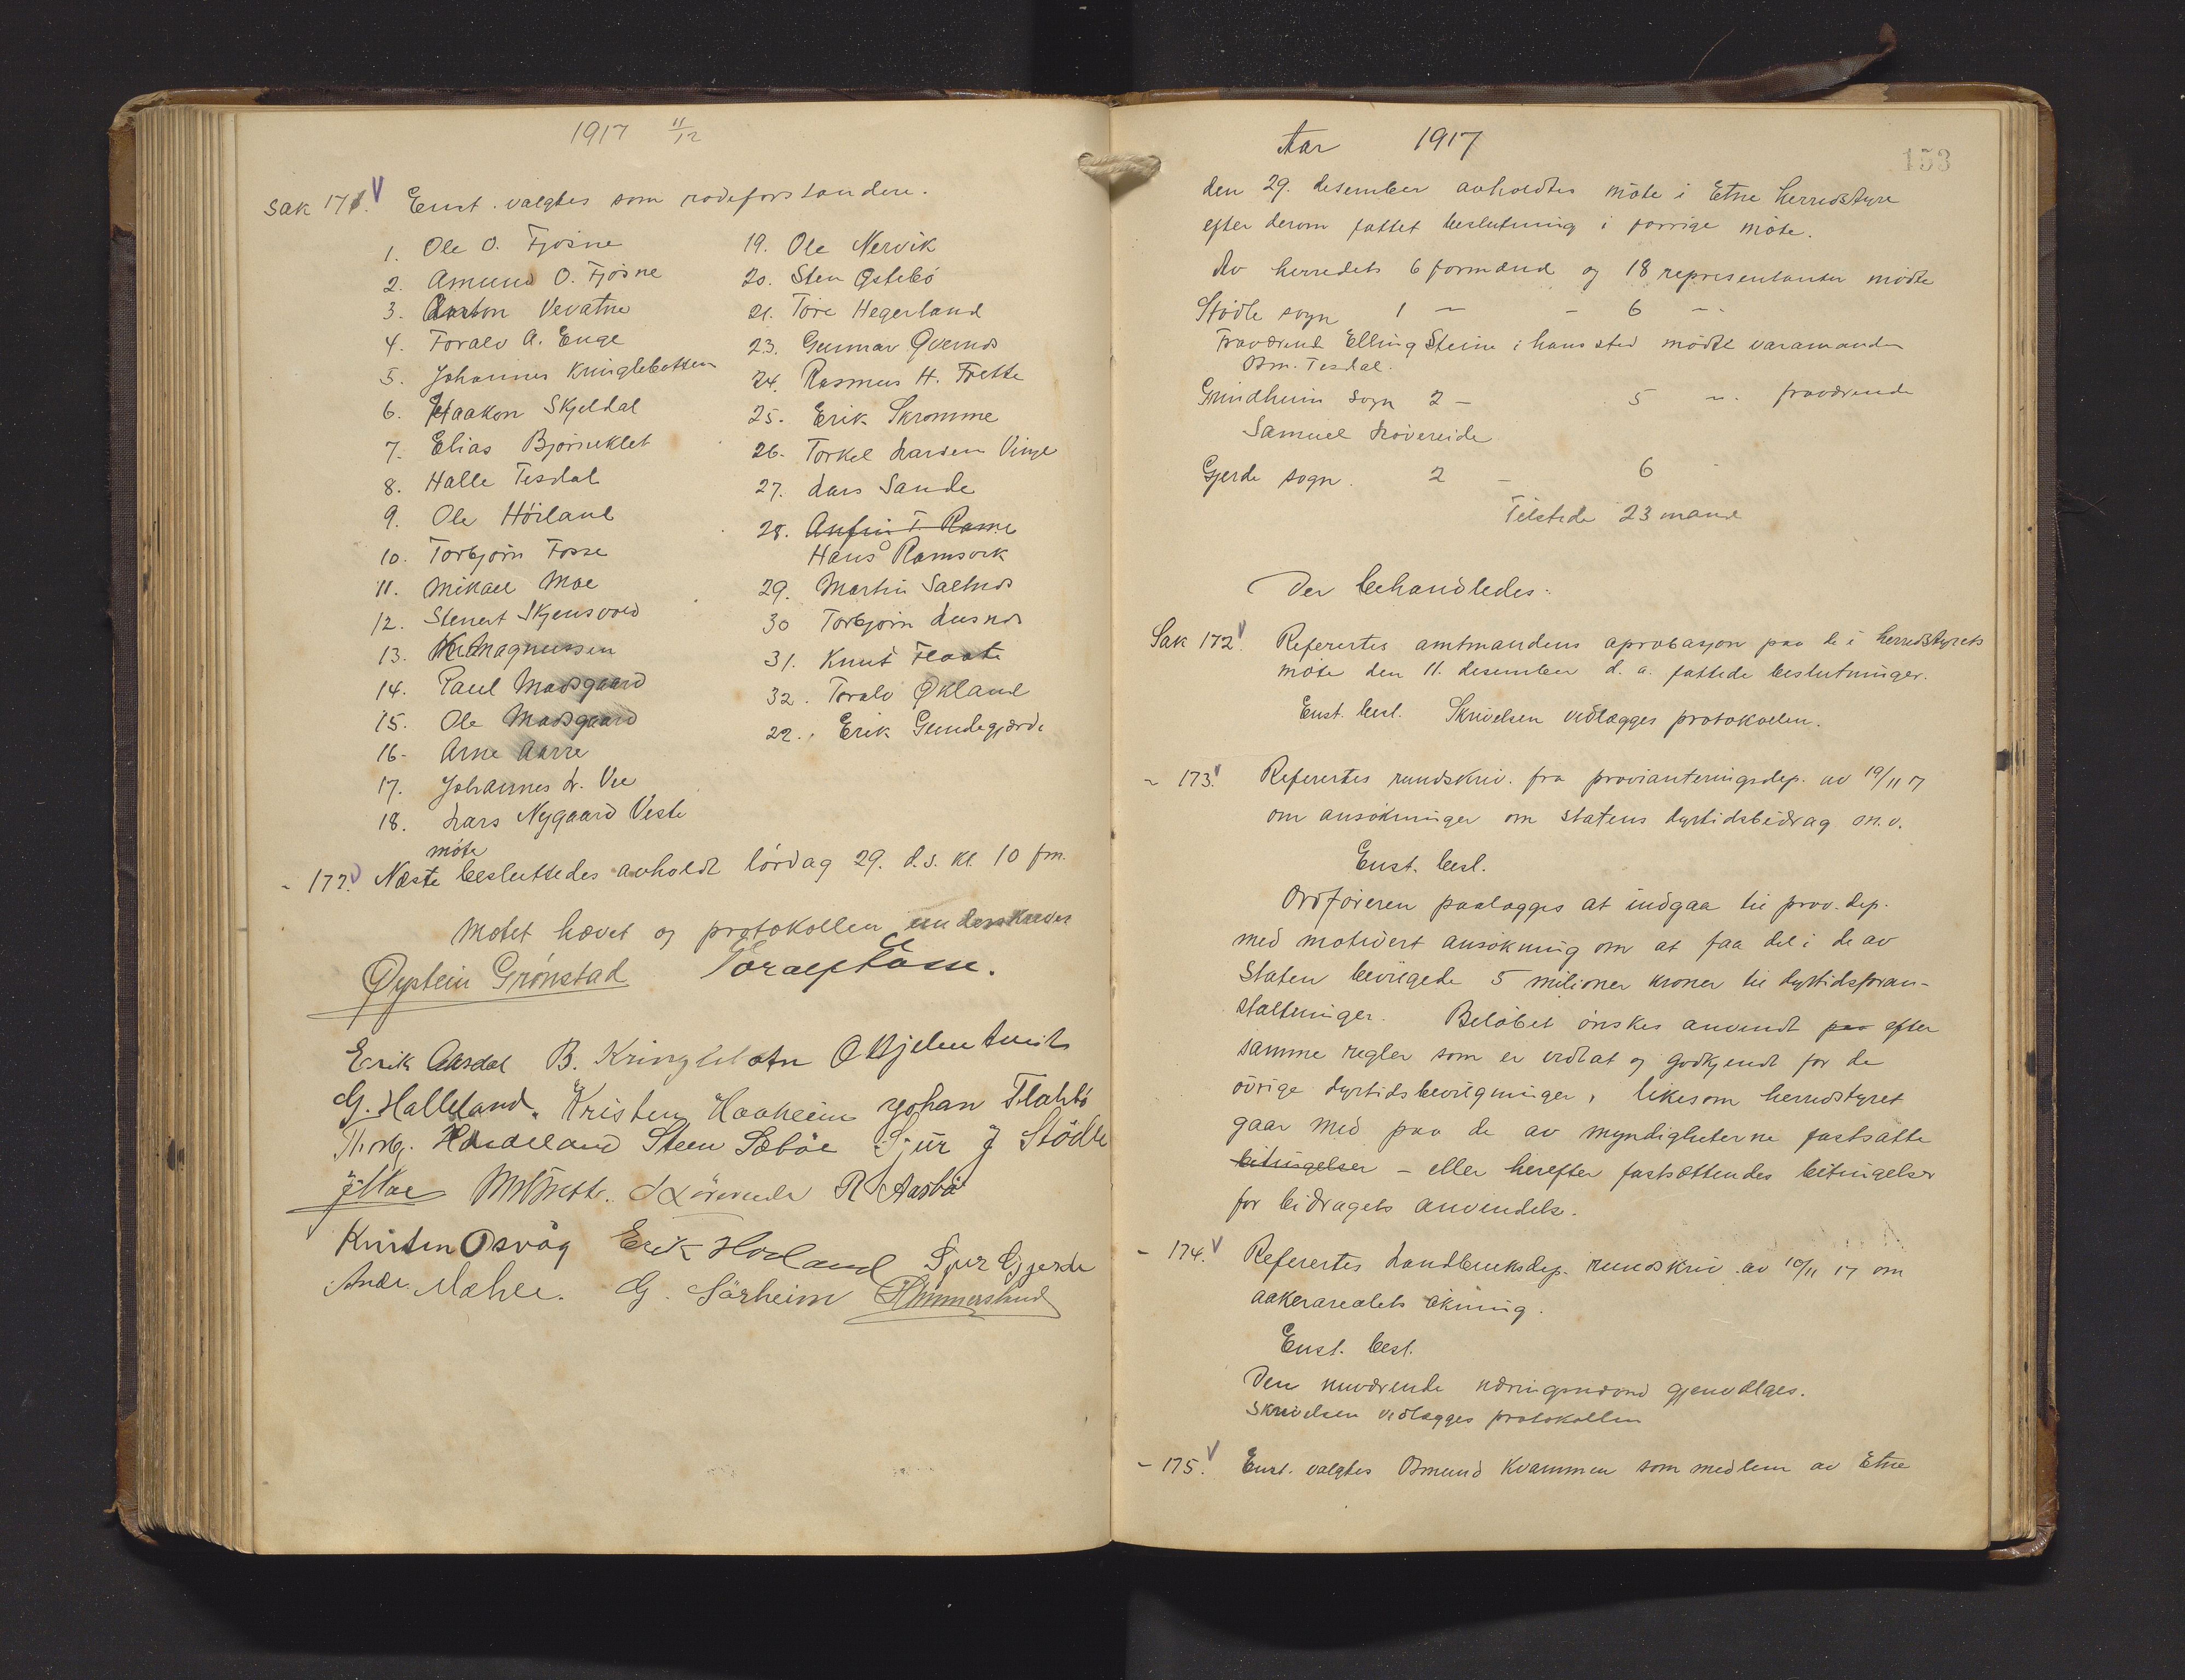 1917 11/12
Sak 171. Enst. valgtes som rodeforstandere.
1. Ole O. Fjøsne
2. Amund O. Fjøsne
3. Anton Vevatne
4. Toralv A. Enge
5. Johannes Kringlebotten
6. Haakon Skjeldal
7. Elias Bjørneklet
8. Halle Tesdal
9. Ole Höiland
10. Torbjørn Fosse
11. Mikael Moe
12. Stenert Skjensvold
13. Kr. Magnussen
14. Paul Madsgaard
15. Ole Madsgaard
16. Arne Aarre
17. Johannes L. Vee
18. Lars Nygaard Veste
19. Ole Nervik
20. Sten Østebö
21. Töre Hegerland
23. Gunnar Qvernds
24. Rasmus H. Frette
25. Erik Skromme
26. Torkel Larsen Vinje
27. Lars Sande
28. Anfin T. Rame
Hans Ramsvik
29. Martin Saltnds
30 Torbjørn Lusnds
31. Knut Flaate
32. Toralv Økland
22. Erik Gundegjærde
møte
- 172. Næste besluttedes avholdt lördag 29. d.s. kl. 10 fm.
Møtet hævet og protokollen underskrevet
Øystein Grønstad Toralf Fosse.
Erik Aksdal B. Kringlebotn O Kjelentveit
G. Halleland. Kristen Haaheim Johan Flatebö
Thorbj. Houdeland Steen Sæböe Sjur J Stödle
J Moe R Aarbö
Kristen Osvåg Erik Höiland Sjur Gjerde
Andr. Mæhle. G. Särheim
Aar 1917
153
den 29. desember avholdtes möte i Etne herredstyre
efter derom fattet beslutning i forrige möte.
Av herredets 6 formænd og 18 representanter mödte
Stödle sogn 1 — - 6 —
Fraværende Elling Steine i hans sted mödte varamanden
Om. Tesdal.
Grindheim sogn 2 — 5 —. fraværende
Samuel Løvereide
Gjerde sogn. 2 - 6
Tilstede 23 mand
Der behandledes:
Sak 172. Refererties amtmandens aprobasjon paa de i herredstyrets
möte den 11. desember d. a. fattede beslutninger.
Enst. besl. Skrivelsen vedlægges protokollen.
- 173. Referertes rundskriv. fra provianteringsdep. av 19/11 17
om ansökninger om statens dyrtidsbidrag m.v.
Enst. besl.
Ordföreren paalægges at indgaa til prov. dep.
med motivert ansökning om at faa del i de av
Staten bevilgede 5 milioner kroner til dyrtidsforan-
staltninger. Belöbet önskes anvendt paa efter
samme regler som er vedtat og godkjendt for de
övrige dyrtidsbevilgninger, likesom herredstyret
gaar med paa de av myndigheterne fastsatte
betingelser - eller herefter fastsættendes betingelser
for bidragets anvendelse.
- 174. Referertes Landbruksdep. rundskriv av 10/11 17 om
aakerarealets ökning.
Enst. besl.
Den nuværende næringsnævnd gjenvælges.
Skrivelsen vedlægges protokollen
- 175. Enst. valgtes Omund Kvammen som medlem av Etne